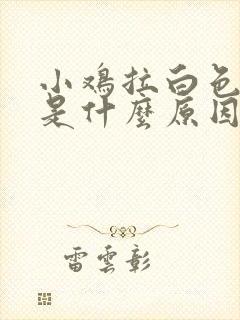 小鸡拉白色
是什麼原因
雷雲彰